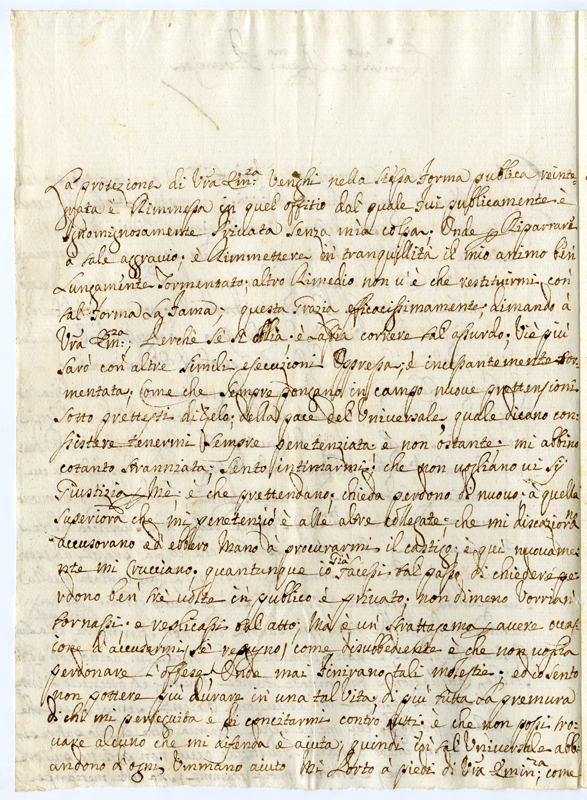 La protezione di Vra Emza. Venghi nella stessa forma publica reinte
grata è Rimmessa in quel offitio dal quale fui publicamente è
Ignomignosamente privata senza mia colpa. Onde p Riparrare
à tale agravio, è Rimmettere in tranquillità il mio animo ben
Lungamente Tormentato; altro Rimedio non u'è che restituirmi con
tal forma La fama; questa Grazia efficacissimamente dimando à
Vra Emza; Perchè se si oblia è Lascia correre tal assurdo, Viè più
sarò con altre simili esecuzioni Oppressa, è incessantemente tor=
mentata, come che sempre pongano in campo nuove prettensioni
sotto prettesti di Zelo, della pace del Universale, quale dicano con=
sistere tenermi sempre penetenziata è non ostante mi abbino
cotanto stranziata, sento intimarmi che non vogliano vi sij
Giustizia p Mè è che prettendano chieda perdono di nuovo à quella
superiora che mi penetenziò è alle altre collegate che mi
accusorano ed ebbero Mano à procurarmi il castigo; è qui nuovame=
nte mi Crucciano, quantunque io sia facessi tal passo di chiedere pe=
rdono ben trè volte in publico è privato, non dimeno vorriano
tornassi è replicassi tal atto, Ma è un strattagema p avere ocas
ione d'accusarmi se repugno, come disubbediente è che non voglia
perdonare l'offese Onde mai finirano tali molestie; ed io sento
non pottere più durare in una tal vita di più tutta La premura
di chi mi perseguida è di concitarmi contro tutti è che non possi tro=
vare alcuno che mi difenda è aiuta; quindi in tal Universale abba
andono d'ogni Ummano aiuto Mi Porto à piedi di Vra Eminza; come